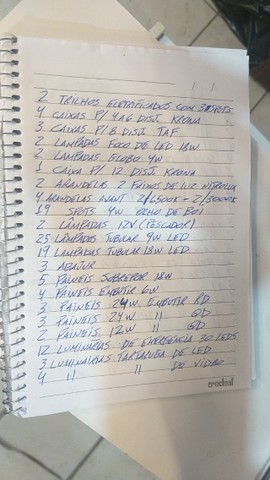 2 TRILHOS ELETRIFICADOS COM 3 SPOTS
4 CAIXAS P/ 4 A 6 DISJ. KRONA
3 CAIXAS P/ 8 DISJ. TAF
2 LAMPADAS FOCO DE LED 18W
2 LAMPADAS GLOBO 4W
1 CAIXA P/ 12 DISJ KRONA
2 ARANDELAS 2 FAIXOS DE LUZ
4 ARANDELAS AVANT 2/6500K - 2/3000K
19 SPOTS 4W OLHO DE BOI
2 LÂMPADAS 12V (PESCADOR)
25 LÂMPADAS TUBULAR 9W LED
19 LAMPADAS TUBULAR 18W LED
3 ABAJUR
5 PAINEIS SOBREPOR 18W
4 PAINEIS EMBUTIR 6W
3 PAINEIS 24W EMBUTIR RD
3 PAINEIS 24W 11 QD
2 PAINEIS 12W 11 QD
12 LUMINARIAS DE EMERGENCIA 30 LEDS
3 LUMINAIRIAS TARTARUGA DE LED
4 11 11 DE VIDRO
credeal